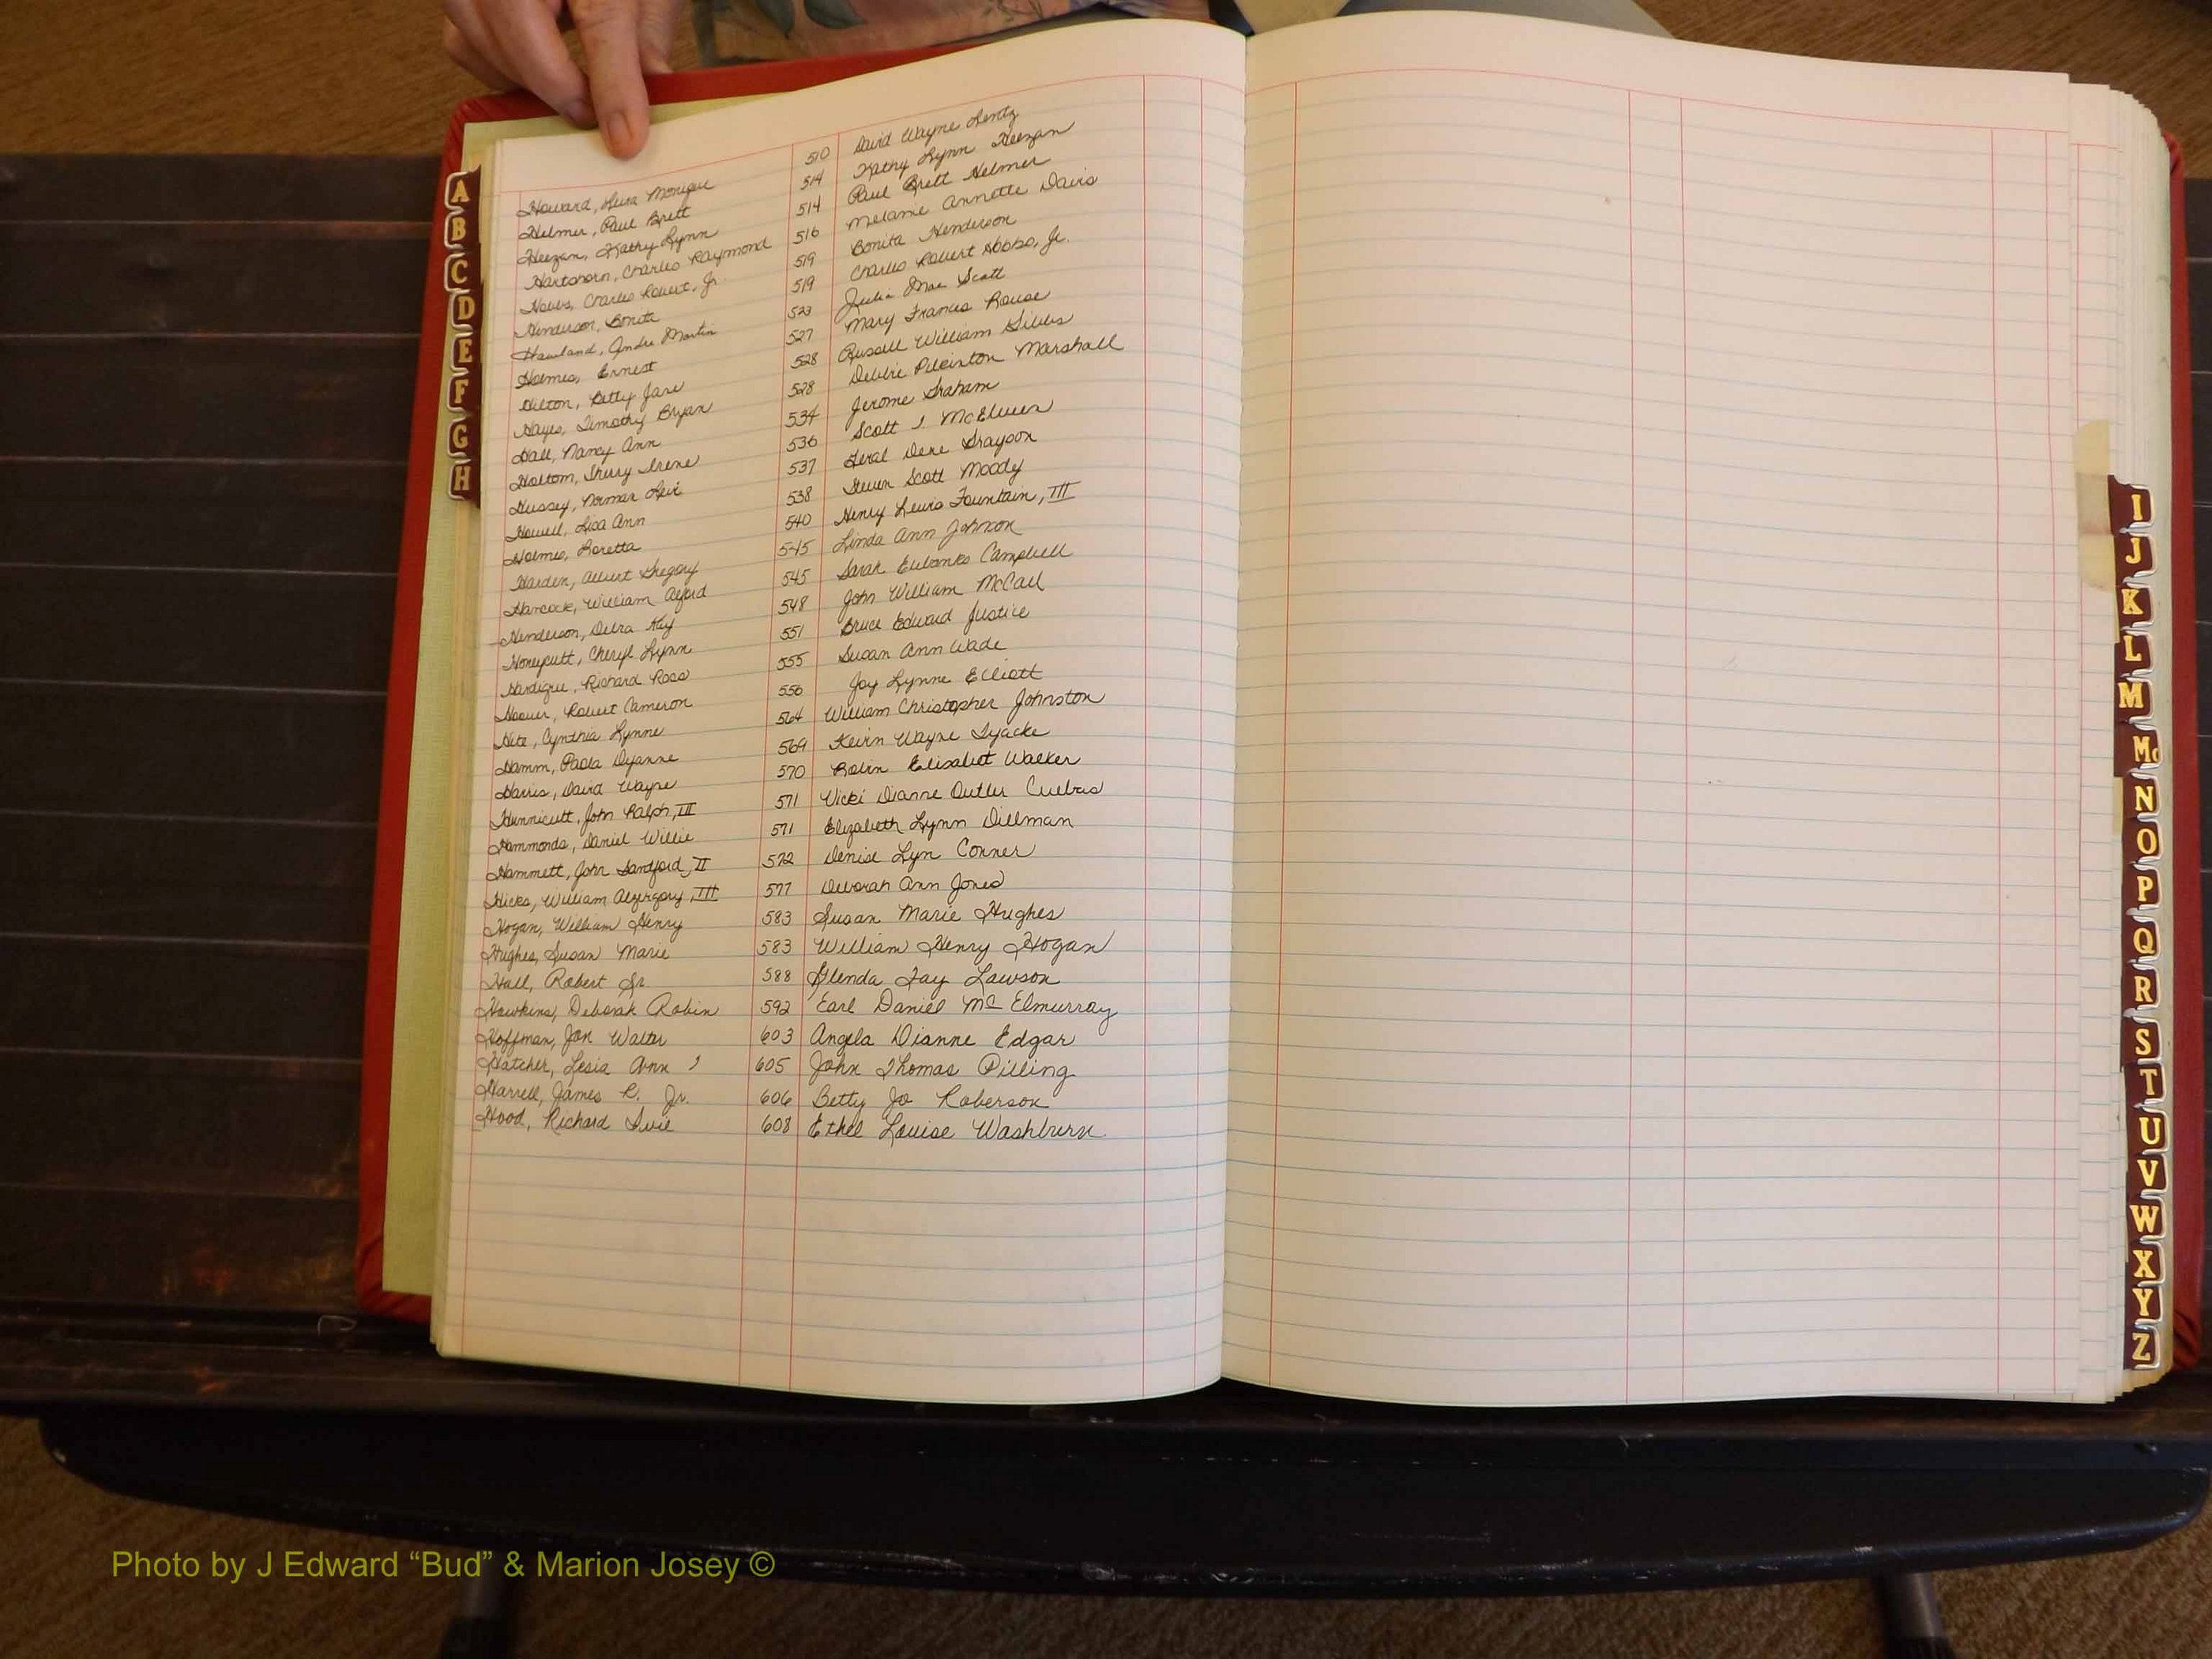 Howard, Lisa Monique 510 David Wayne Lentz
Helmer, Paul Brett 514 Kathy Lynn Heezan
Heezan, Kathy Lynn 514 Paul Brett Helmer
Hartshorn, Charles Raymond 516 Melanie Annette Davis
Hobbs, Charles Robert, Jr. 519 Bonita Henderson
Henderson, Bonita 519 Charles Robert Hobbs, Jr.
Haviland, Andre Martin 523 Julia Mae Scott
Holmes, Ernest 527 Mary Frances Rouse
Hilton, Betty Jane 528 Russell William Gibbs
Hayes, Timothy Bryan 528 Debbie Marshall
Hall, Nancy Ann 534 Jerome Graham
Holtom, Sherry Irene 536 Scott J. McElveen
Hussey, Norman 537 Dene Grayson
Howell, Lisa Ann 538 Steven Scott Moody
Holmes, Loretta 540 Henry Lewis Fountain, III
Harden, Albert Gregory 545 Linda Ann Johnson
Hancock, William Alford 545 Sarah Eubanks Campbell
Henderson, Debra Kay 548 John William McCall
Honeycutt, Cheryl Lynn 551 Bruce Edward Justice
Hardigree, Richard Ross 555 Susan Ann Wade
Hoover, Robert Cameron 556 Joy Lynne Elliott
Hite, Cynthia Lynne 564 William Christopher Johnston
Hamm, Paula Dyanne 569 Kevin Wayne Tyacke
Harris, David Wayne 570 Robin Elisabet Walker
Hunnicutt, John Ralph, III 571 Vicki Dianne Cuebas
Hammonds, Daniel Willie 571 Elizabeth Lynn Dillman
Hammett, John Sandford, II 572 Denise Lyn Conner
Hicks, William III 577 Deborah Ann Jones
Hogan, William Henry 583 Susan Marie Hughes
Hughes, Susan Marie 583 William Henry Hogan
Hall, Robert Sr. 588 Glenda Fay Lawson
Hawkins, Deborah Robin 592 Earl Daniel McElmurray
Hoffman, Jon Walter 603 Angela Dianne Edgar
Hatcher, Lesia Ann 605 John Thomas Pilling
Harrell, James R. Jr. 606 Betty Jo Roberson
Hood, Richard Ivie 608 Ethel Louise Washburn
A
B
C
D
E
F
G
H
I
J
K
L
M
Mc
N
O
P
Q
R
S
T
U
V
W
X
Y
Z
Photo by J Edward “Bud” & Marion Josey ©